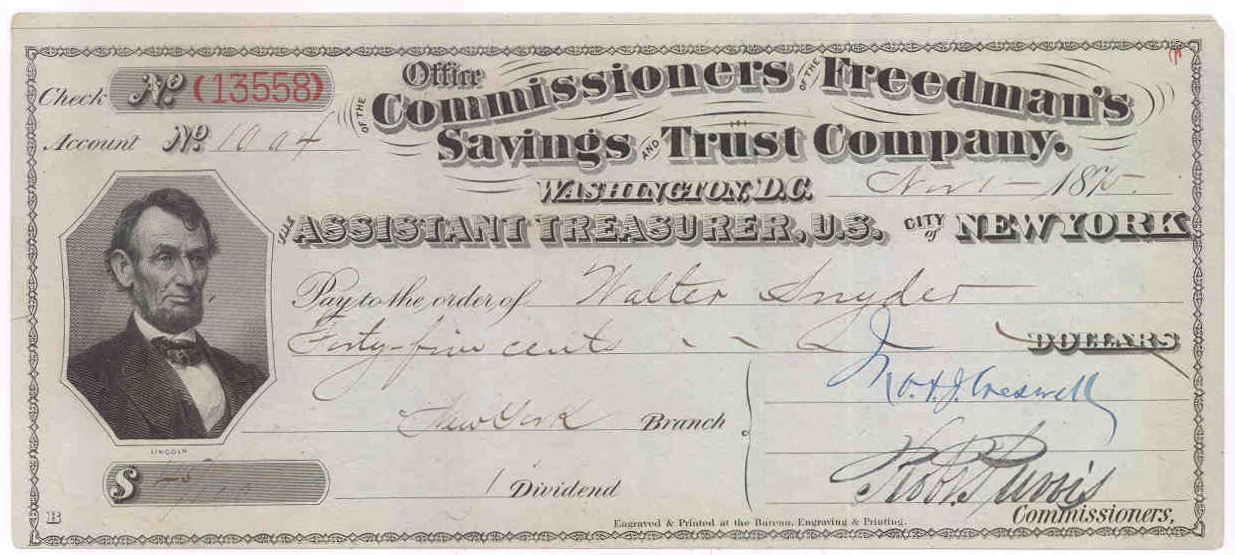 Check No (13558)
Office
OF THE Commissioners OF THE Freedman's
Account No 1024
Savings AND Trust Company.
WASHINGTON, D.C. Nov 1 - 1875.
THE ASSISTANT TREASURER, U.S. CITY of NEW YORK
Pay to the order of Walter Snyder
Forty-five cents DOLLARS
Jno. A. J. Creswell
New York Branch
LINCOLN
Robt Purvis
$ 45/100
1 Dividend
Commissioners,
B
Engraved & Printed at the Bureau, Engraving & Printing.